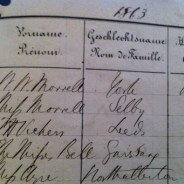 1863
Vorname Geschlechtsname
Prénom Nom de Famille
Morrell York
Miss Morrell Selby
Vickers Leeds
Miss Bell
Miss Northallerton